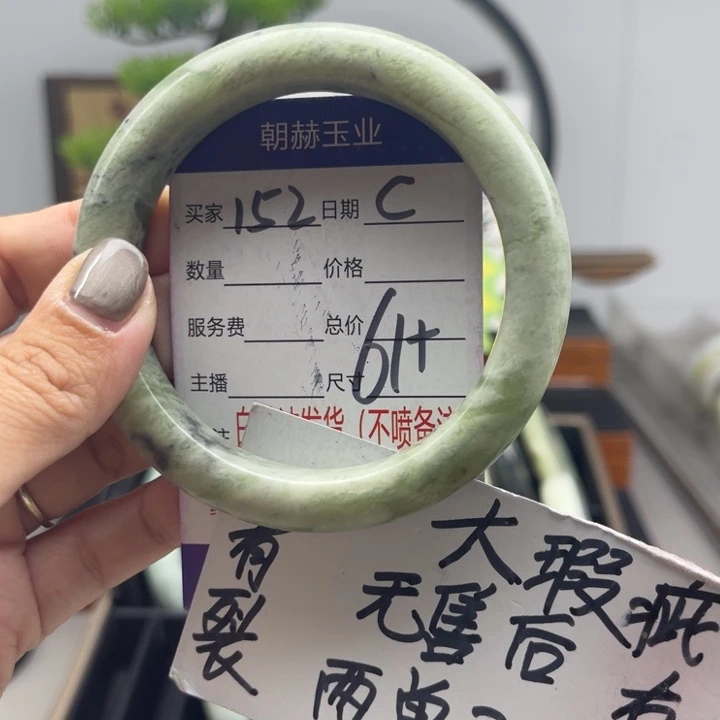 朝赫玉业
买家 152 日期 C
数量 价格
服务费 总价
主播 尺寸 61+
发货（不喷备注
有裂
大瑕疵
无售后
有